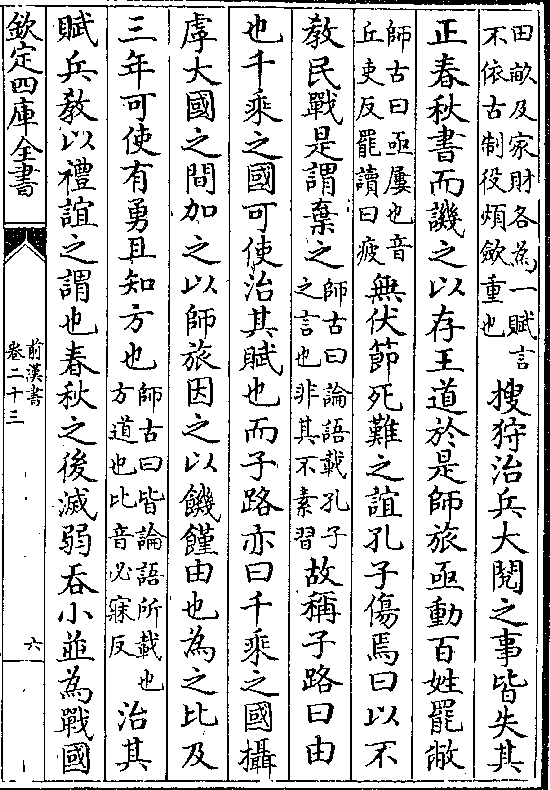 田畝及家財各為一賦言
不依古制役煩歛重也
搜狩治兵大閱之事皆失其
正春秋書而譏之以存王道於是師旅亟動百姓罷敝
師古曰亟屢也音
丘吏反罷讀曰疲
無伏節死難之誼孔子傷焉曰以不
教民戰是謂棄之
師古曰論語載孔子
之言也非其不素習
故稱子路曰由
也千乘之國可使治其賦也而子路亦曰千乘之國攝
虖大國之間加之以師旅因之以饑饉由也為之比及
三年可使有勇且知方也
師古曰皆論語所載也
方道也比音必寐反
治其
賦兵教以禮誼之謂也春秋之後滅弱吞小並為戰國
欽定四庫全書
前漢書
卷二十三
六